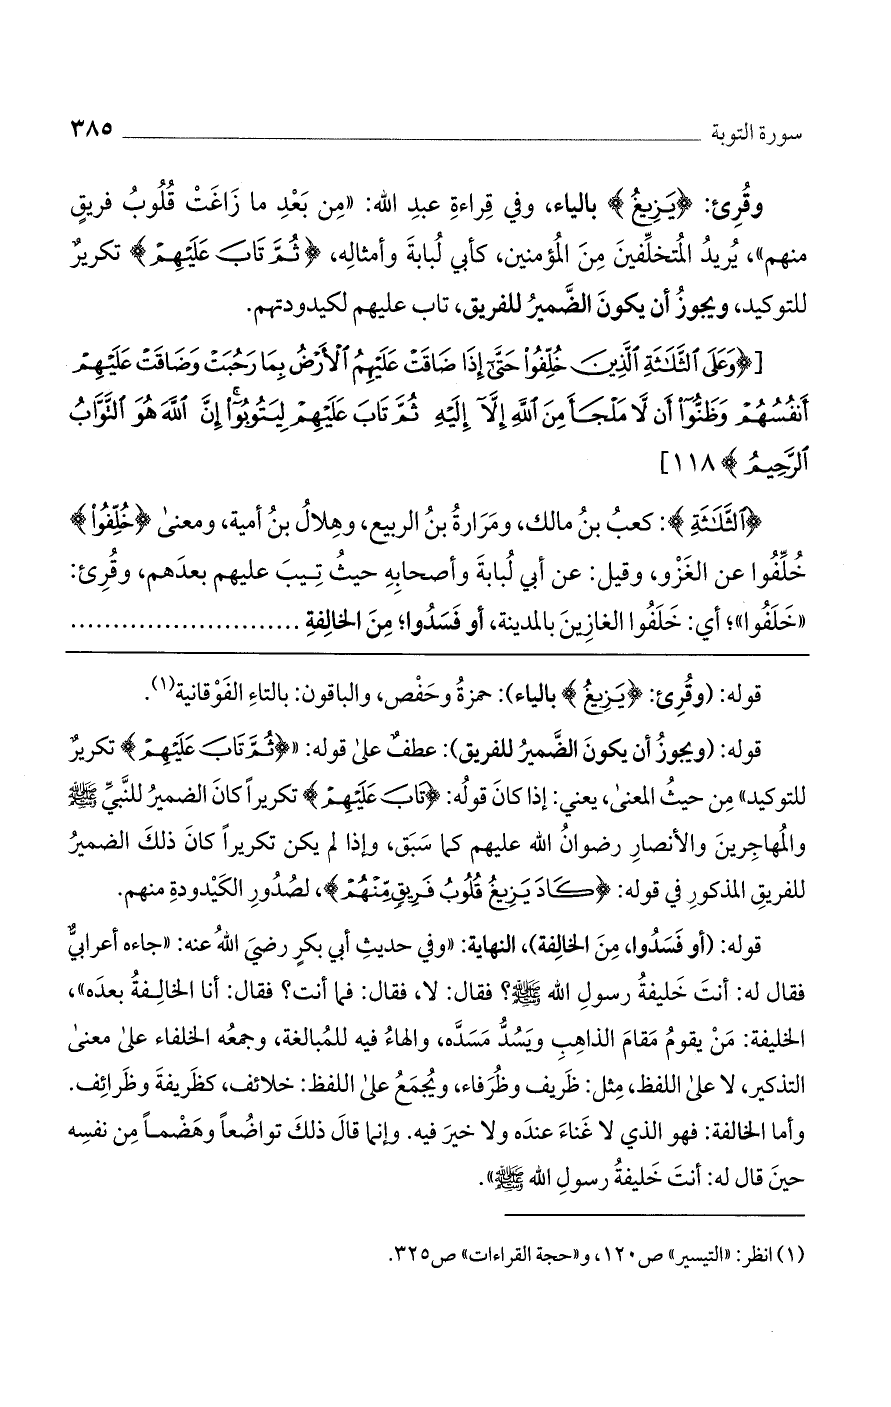 سورة التوبة ٣٨٥
وقُرِئ: ﴿يَزِيغُ﴾ بالياء، وفي قِراءةِ عبدِ الله: «مِن بَعْدِ ما زَاغَتْ قُلُوبُ فريقٍ
منهم»، يُريدُ المُتخلِّفينَ مِنَ المُؤمنين، كأبي لُبابةَ وأمثالِه، ﴿ثُمَّ تَابَ عَلَيْهِمْ﴾ تكريرٌ
للتوكيد، ويجوزُ أن يكونَ الضَّميرُ للفريق، تاب عليهم لكيدودتهم.
[﴿وَعَلَى ٱلثَّلَاثَةِ ٱلَّذِينَ خُلِّفُوا۟ حَتَّىٰٓ إِذَا ضَاقَتْ عَلَيْهِمُ ٱلْأَرْضُ بِمَا رَحُبَتْ وَضَاقَتْ عَلَيْهِمْ
أَنفُسُهُمْ وَظَنُّوٓا۟ أَن لَّا مَلْجَأَ مِنَ ٱللَّهِ إِلَّآ إِلَيْهِ ثُمَّ تَابَ عَلَيْهِمْ لِيَتُوبُوٓا۟ ۚ إِنَّ ٱللَّهَ هُوَ ٱلتَّوَّابُ
ٱلرَّحِيمُ﴾ ١١٨]
﴿ٱلثَّلَاثَةِ﴾: كعبُ بنُ مالك، ومَرَارةُ بنُ الربيع، وهِلالُ بنُ أمية، ومعنىٰ ﴿خُلِّفُوا۟﴾
خُلِّفُوا عن الغَزْو، وقيل: عن أبي لُبابةَ وأصحابِهِ حيثُ تِيبَ عليهم بعدَهم، وقُرِئ:
«خَلَفُوا»؛ أي: خَلَفُوا الغازِينَ بالمدينة، أو فَسَدُوا؛ مِنَ الخالِفةِ ............................
قوله: (وقُرِئ: ﴿يَزِيغُ﴾ بالياء): حمزةُ وحَفْص، والباقون: بالتاءِ الفَوْقانية(١).
قوله: (ويجوزُ أن يكونَ الضَّميرُ للفريق): عطفٌ علىٰ قوله: «﴿ثُمَّ تَابَ عَلَيْهِمْ﴾ تكريرٌ
للتوكيد» مِن حيثُ المعنىٰ، يعني: إذا كانَ قولُه: ﴿تَابَ عَلَيْهِمْ﴾ تكريراً كانَ الضميرُ للنَّبيِّ ﷺ
والمُهاجِرينَ والأنصارِ رضوانُ الله عليهم كما سَبَق، وإذا لم يكن تكريراً كانَ ذلكَ الضميرُ
للفريقِ المذكورِ في قوله: ﴿كَادَ يَزِيغُ قُلُوبُ فَرِيقٍ مِّنْهُمْ﴾، لصُدُورِ الكَيْدودةِ منهم.
قوله: (أو فَسَدُوا، مِنَ الخالِفة)، النهاية: «وفي حديثِ أبي بكرٍ رضيَ اللهُ عنه: «جاءه أعرابيٌّ
فقال له: أنتَ خَليفةُ رسولِ الله ﷺ؟ فقال: لا، فقال: فما أنت؟ فقال: أنا الخالِفةُ بعدَه»،
الخليفة: مَنْ يقومُ مَقامَ الذاهبِ ويَسُدُّ مَسَدَّه، والهاءُ فيه للمُبالغة، وجمعُه الخلفاء علىٰ معنىٰ
التذكير، لا علىٰ اللفظ، مِثل: ظَريف وظُرَفاء، ويُجمَعُ علىٰ اللفظ: خلائف، كظَريفة وظَرائِف.
وأما الخالفة: فهو الذي لا غَناءَ عندَه ولا خيرَ فيه. وإنما قالَ ذلكَ تواضُعاً وهَضْماً مِن نفسِه
حينَ قال له: أنتَ خَليفةُ رسولِ الله ﷺ».
(١) انظر: «التيسير» ص١٢٠، و«حجة القراءات» ص٣٢٥.